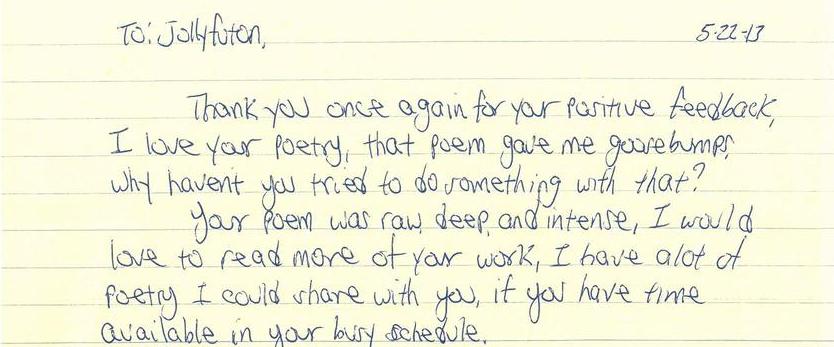 To: Jollyfuton, 5-22-13
Thank you once again for your positive feedback,
I love your poetry, that poem gave me goosebumps,
why havent you tried to do something with that?
Your poem was raw, deep, and intense, I would
love to read more of your work, I have alot of
poetry I could share with you, if you have time
available in your busy schedule.